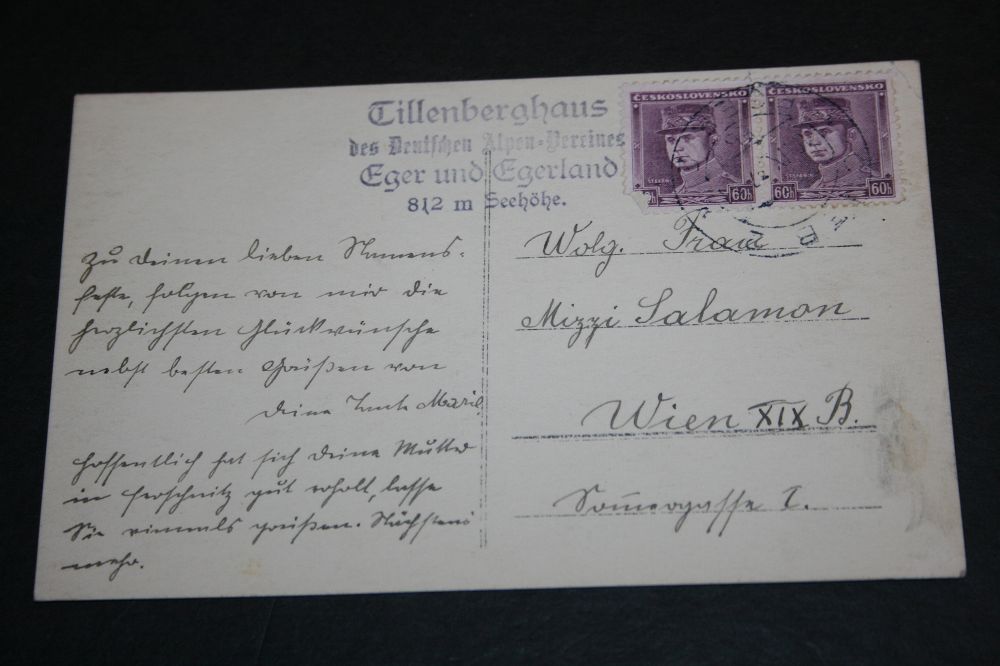 Tillenberghaus
des Deutschen Alpen-Vereines
Eger und Egerland
812 m Seehöhe.
ČESKOSLOVENSKO
ŠTEFÁNIK
60h
ČESKOSLOVENSKO
ŠTEFÁNIK
60h 60h
Wolg. Frau
Mizzi Salamon
Wien XIX B.
Sommergasse
Zu Deinem lieben Namens-
feste, folgen von mir die
herzlichsten Glückwünsche
nebst besten Grüßen von
Deine Tante Marie
Hoffentlich hat sich Deine Mutter
in gut erholt, lasse
Sie vielmals grüßen. Nächstens
mehr.